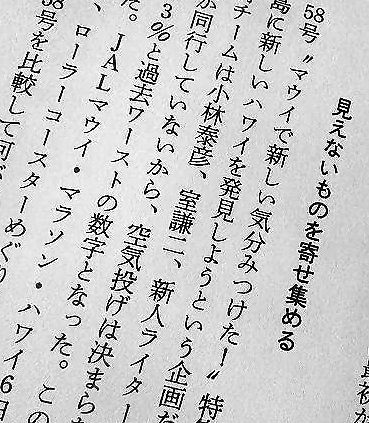 最初
見えないものを寄せ集める
58号〝マウイで新しい気分みつけた！〟特
島に新しいハワイを発見しようという企画だ
チームは小林泰彦、室謙二、新人ライター
が同行していないから、空気投げは決まら
3％と過去ワーストの数字となった。この
た。JALマウイ・マラソン・ハワイ6日
、ローラーコースターめぐり
58号を比較して何が